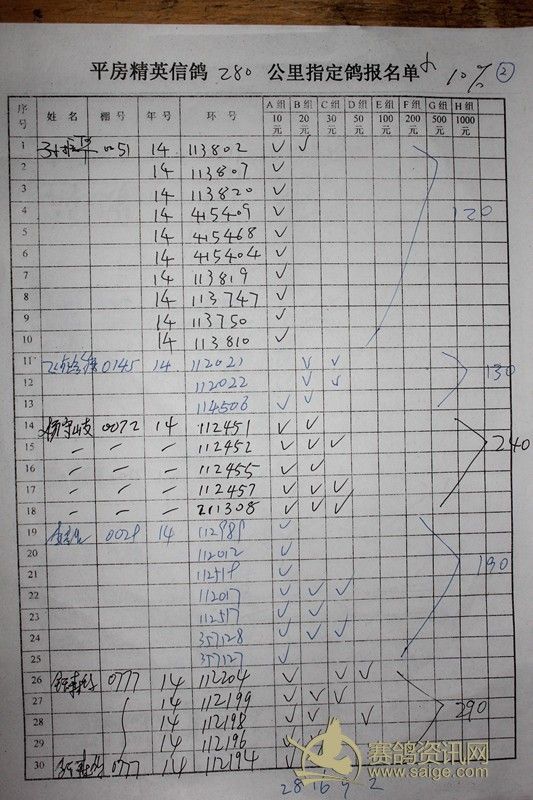 平房精英信鸽 280 公里指定鸽报名单 10% ②
序号 姓名 棚号 年号 环号 A组10元 B组20元 C组30元 D组50元 E组100元 F组200元 G组500元 H组1000元
1 0051 14 113802 ✓ ✓
2 14 113807 ✓
3 14 113820 ✓
4 14 415409 ✓ 120
5 14 415468 ✓
6 14 415404 ✓
7 14 113819 ✓
8 14 113747 ✓
9 14 113750 ✓
10 14 113810 ✓
11 0145 14 112021 ✓ ✓
12 112022 ✓ ✓ 130
13 114506 ✓ ✓
14 0072 14 112451 ✓ ✓
15 – – – 112452 ✓ ✓ ✓ 240
16 – – – 112455 ✓ ✓
17 – – – 112457 ✓ ✓ ✓
18 – – – 211308 ✓ ✓ ✓
19 14 112989 ✓
20 112012 ✓
21 ✓ 190
22 112017 ✓ ✓ ✓
23 112517 ✓ ✓
24 357128 ✓ ✓ ✓
25 357127 ✓
26 0777 14 112204 ✓ ✓ ✓
27 14 112199 ✓ ✓ ✓
28 14 112198 ✓ ✓ ✓ 290
29 14 112196 ✓ ✓
30 0777 14 112194 ✓
28 16 9 2
赛鸽资讯网
www.saige.com